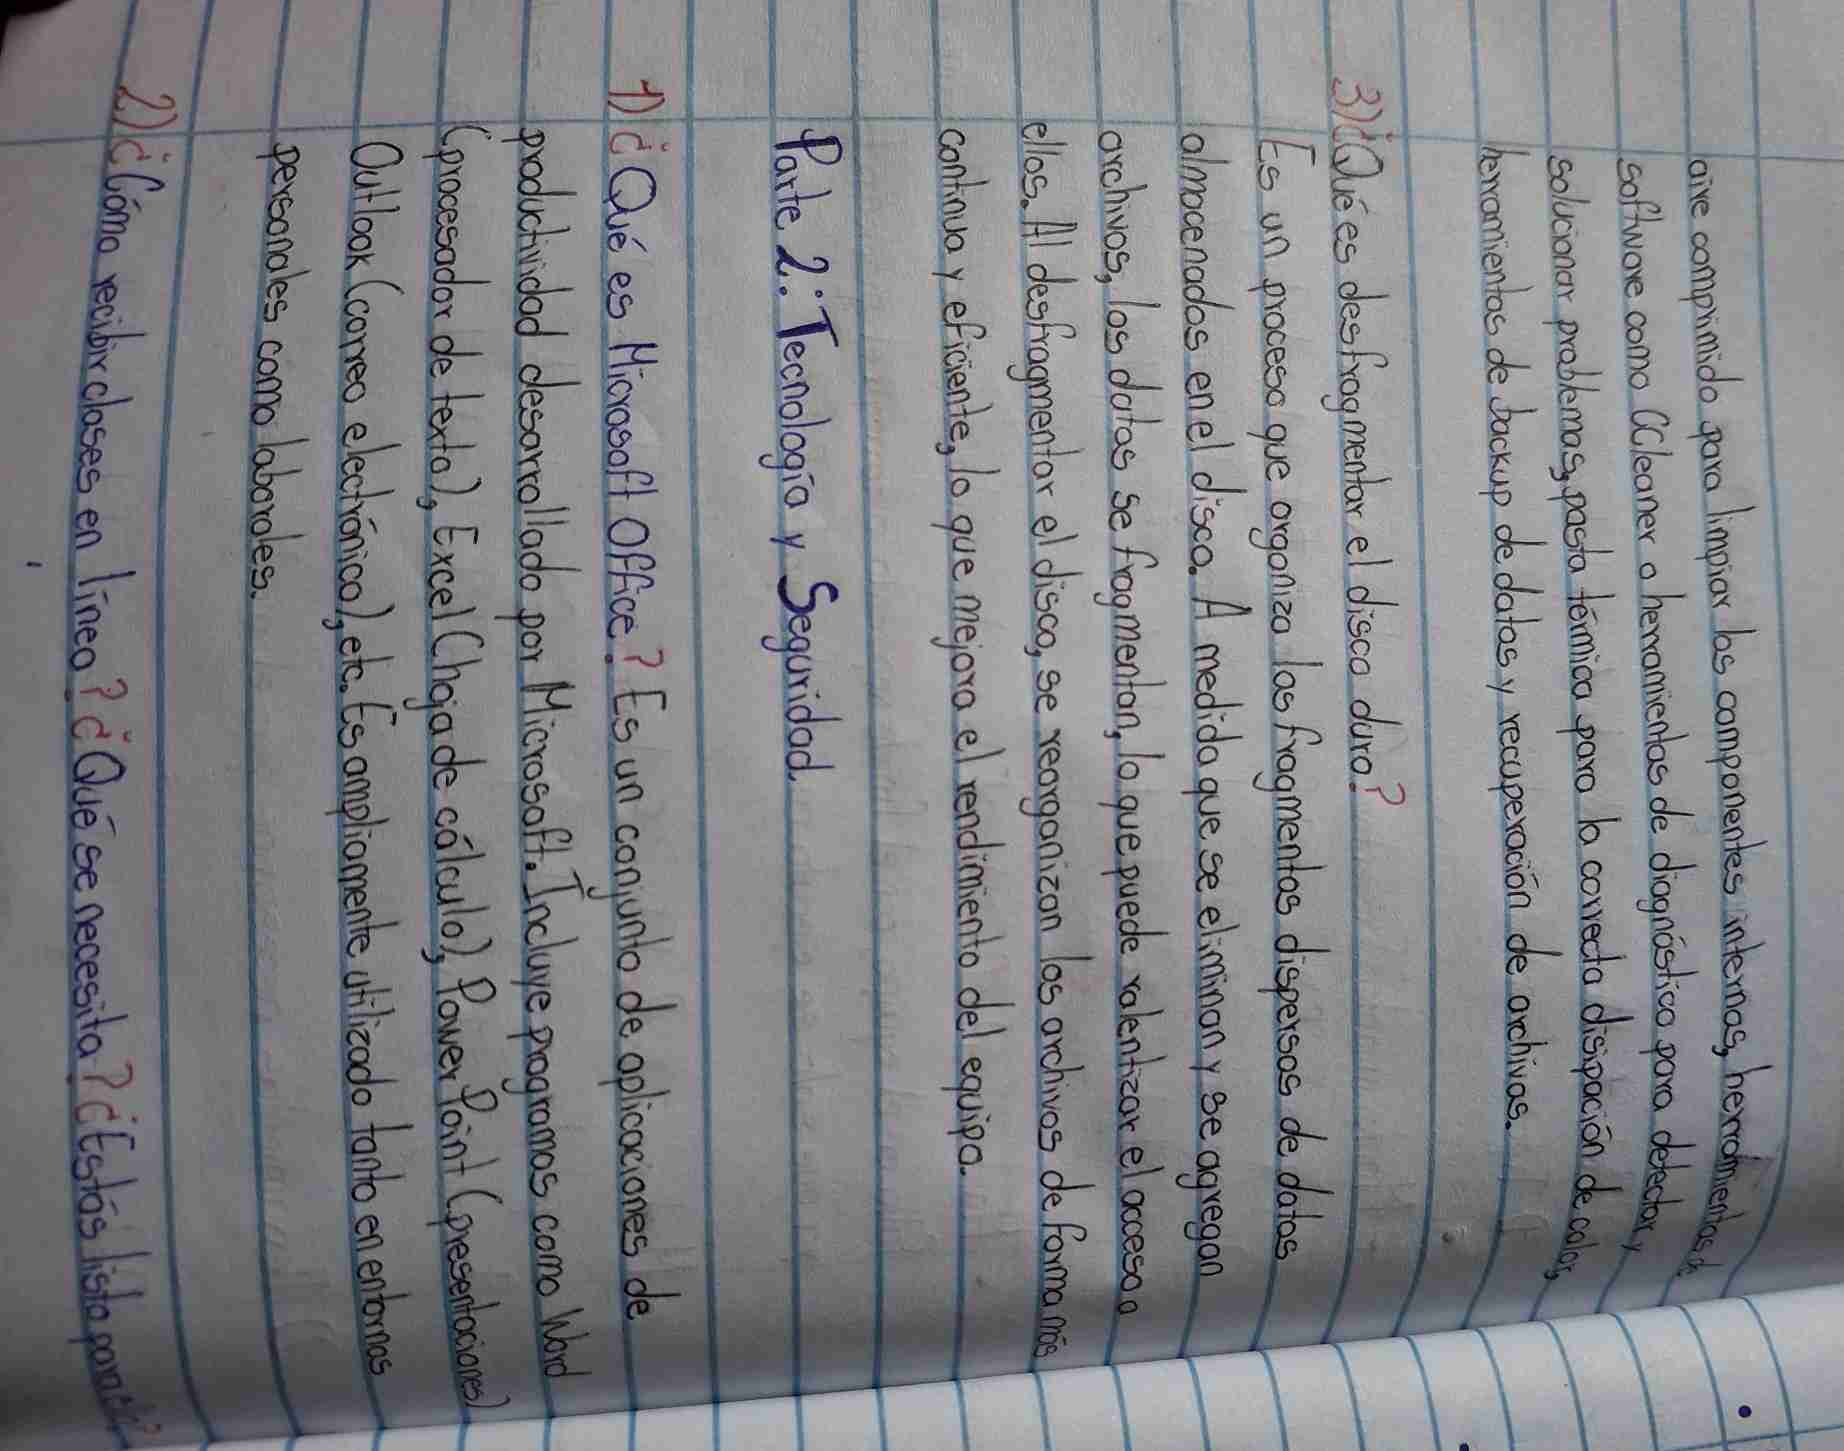 aire comprimido para limpiar los componentes internos, herramientas de
software como CCleaner o herramientas de diagnóstico para detectar y
solucionar problemas, pasta térmica para la correcta disipación de calor,
herramientas de backup de datos y recuperación de archivos.
3) ¿Qué es desfragmentar el disco duro?
Es un proceso que organiza los fragmentos dispersos de datos
almacenados en el disco. A medida que se eliminan y se agregan
archivos, los datos se fragmentan, lo que puede ralentizar el acceso a
ellos. Al desfragmentar el disco, se reorganizan los archivos de forma más
continua y eficiente, lo que mejora el rendimiento del equipo.
Parte 2: Tecnología y Seguridad.
1) ¿Qué es Microsoft Office? Es un conjunto de aplicaciones de
productividad desarrollado por Microsoft. Incluye programas como Word
(procesador de texto), Excel (hoja de cálculo), Power Point (presentaciones)
Outlook (correo electrónico), etc. Es ampliamente utilizado tanto en entornos
personales como laborales.
2) ¿Cómo recibir clases en línea? ¿Qué se necesita? ¿Estás listo para